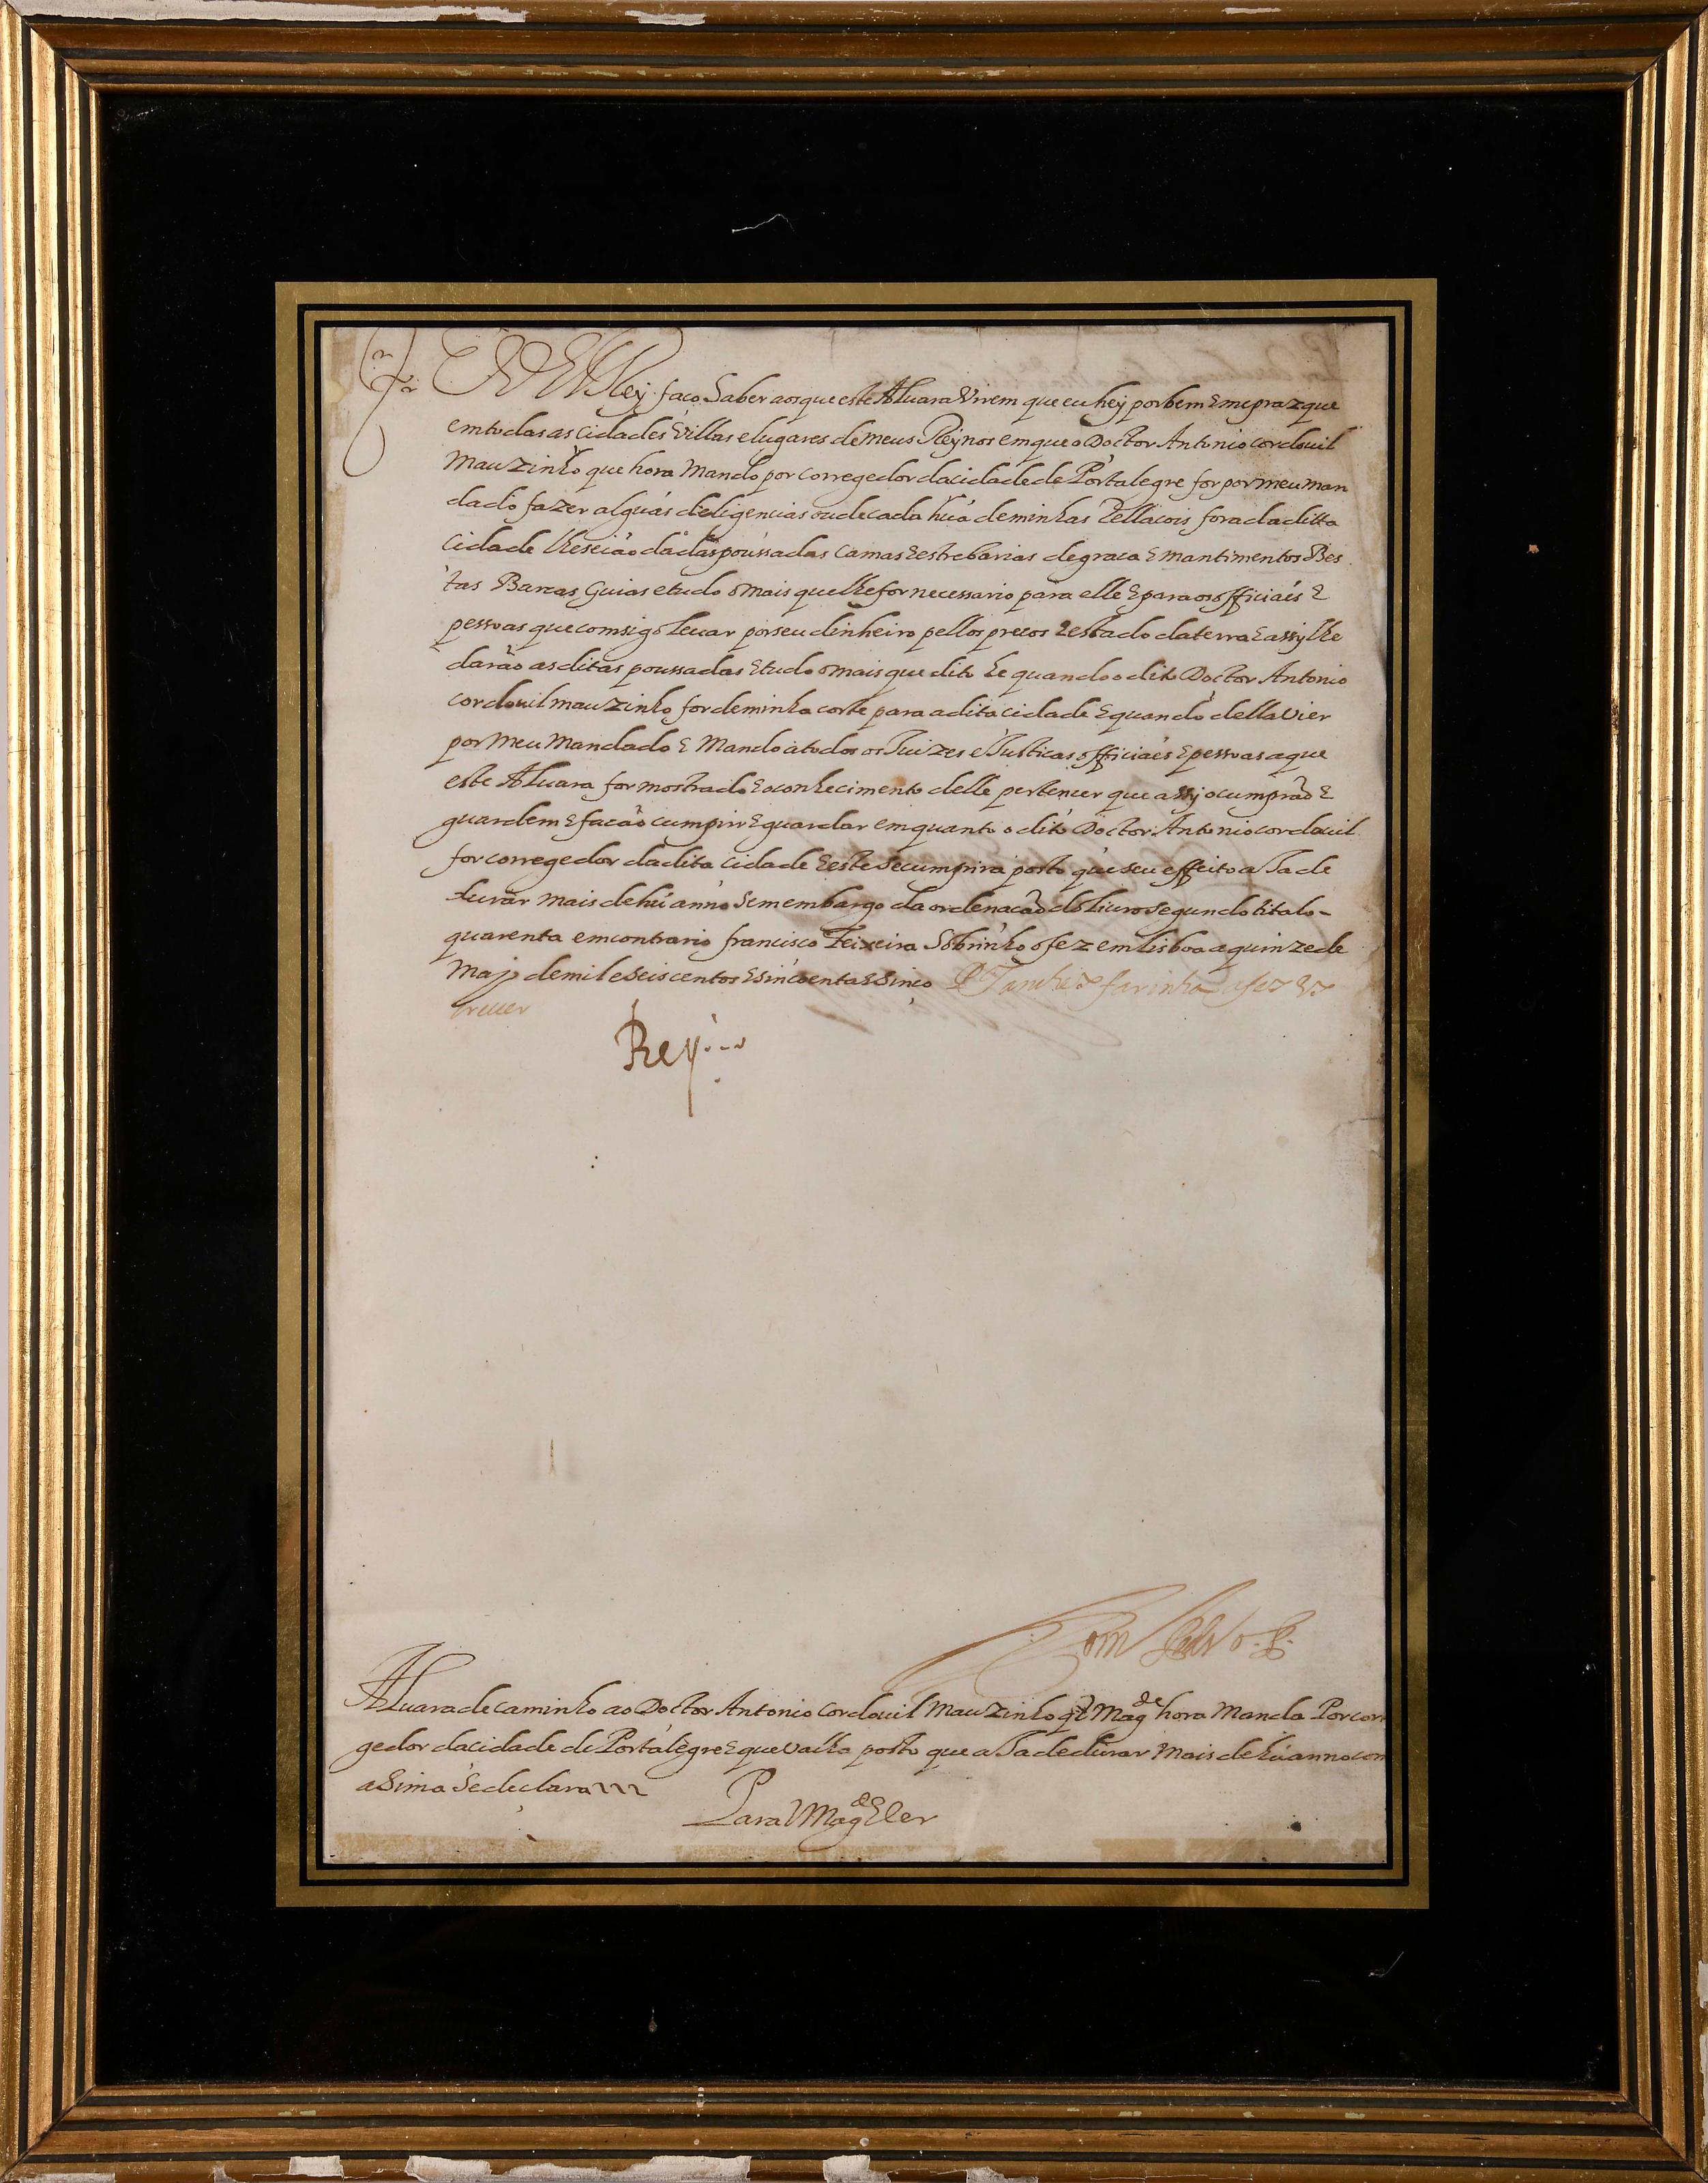 EU ElRey faço Saber aos que este Aluara Virem que eu hey por bem E me praz que
em todas as cidades Villas e lugares de meus Reynos em que o Doctor Antonio cordouil
Mauzinho que hora Mando por corregedor da cidade de Portalegre for por meu man
dado fazer alguás deligencias ou de cada huá de minhas Rellacois fora da ditta
Cidade lhe seião dadas poussadas camas E estrebarias de graca E mantimentos Bes
tas Barcas Guias e tudo o mais que lhe for necessario para elle E para os officiaés E
pessoas que comsigo leuar por seu dinheiro pellos precos E estado da terra E assy lhe
darão as ditas poussadas E tudo o mais que dito he quando o dito Doctor Antonio
cordouil mauzinho for de minha corte para a dita cidade E quando della Vier
por Meu Mandado E Mando a todos os Juizes e Justicas officiaés E pessoas a que
este Aluara for mostrado E o conhecimento delle pertencer que assy o cumprão E
guardem E facão cumprir E guardar emquanto o dito Doctor Antonio cordouil
for corregedor da dita cidade E este se cumprira posto que seu effeito aja de
durar mais de hú anno Sem embargo da ordenacão do Liuro segundo titalo-
quarenta em contrario francisco Teixeira Sobrinho o fez em lisboa a quinze de
Majo de mil e Seiscentos E Sincoenta E Sinco Pº Sanches farinha o fez Es
creuer
Rey
Aluara de caminho ao Doctor Antonio cordouil Mauzinho q V Magde hora Manda Por corr
gedor da cidade de Portalegre E que valha posto que aja de durar Mais de hú anno com
a Sima Se declara
Para V Magde Ver